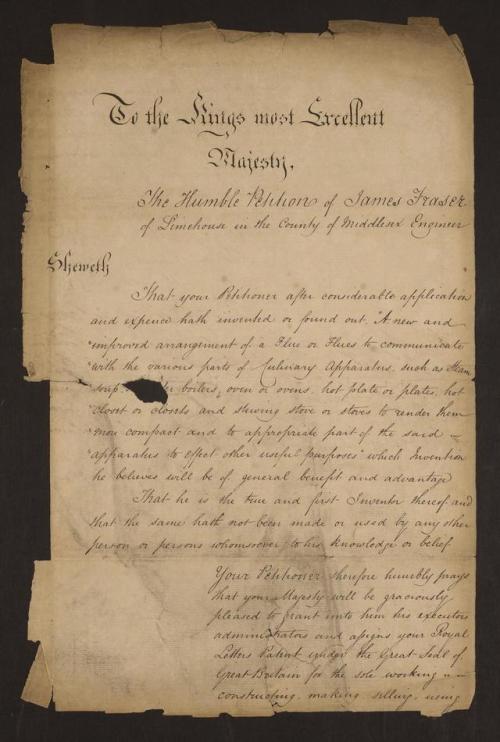 To the Kings most Excellent
Majesty,
The Humble Petition of James Fraser
of Limehouse in the County of Middlesex Engineer
Sheweth
That your Petitioner after considerable application
and expence hath invented or found out "A new and
"improved arrangement of a Flue or Flues to communicate
"with the various parts of Culinary Apparatus, such as Steam
soup boilers, oven or ovens, hot plate or plates, hot
closet or closets and stewing stove or stoves to render them
"more compact and to appropriate part of the said
apparatus to effect other useful purposes" which Invention
he believes will be of general benefit and advantage
That he is the true and first Inventor thereof and
that the same hath not been made or used by any other
person or persons whomsoever to his knowledge or belief
Your Petitioner therefore humbly prays
that your Majesty will be graciously
pleased to grant unto him his executors
administrators and assigns your Royal
Letters Patent under the Great Seal of
Great Britain for the sole working
constructing, making, selling, using